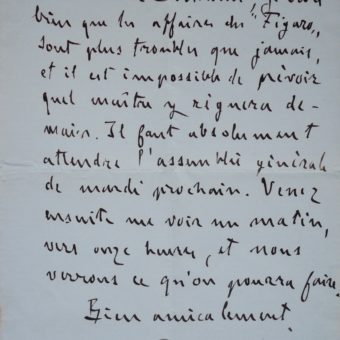 bien que les affaires du "Figaro"
sont plus troubles que jamais,
et il est impossible de prévoir
quel maître y règnera de-
main. Il faut absolument
attendre l'assemblée générale
de mardi prochain. Venez
ensuite me voir un matin,
vers onze heures, et nous
verrons ce qu'on pourra faire.
Bien amicalement.